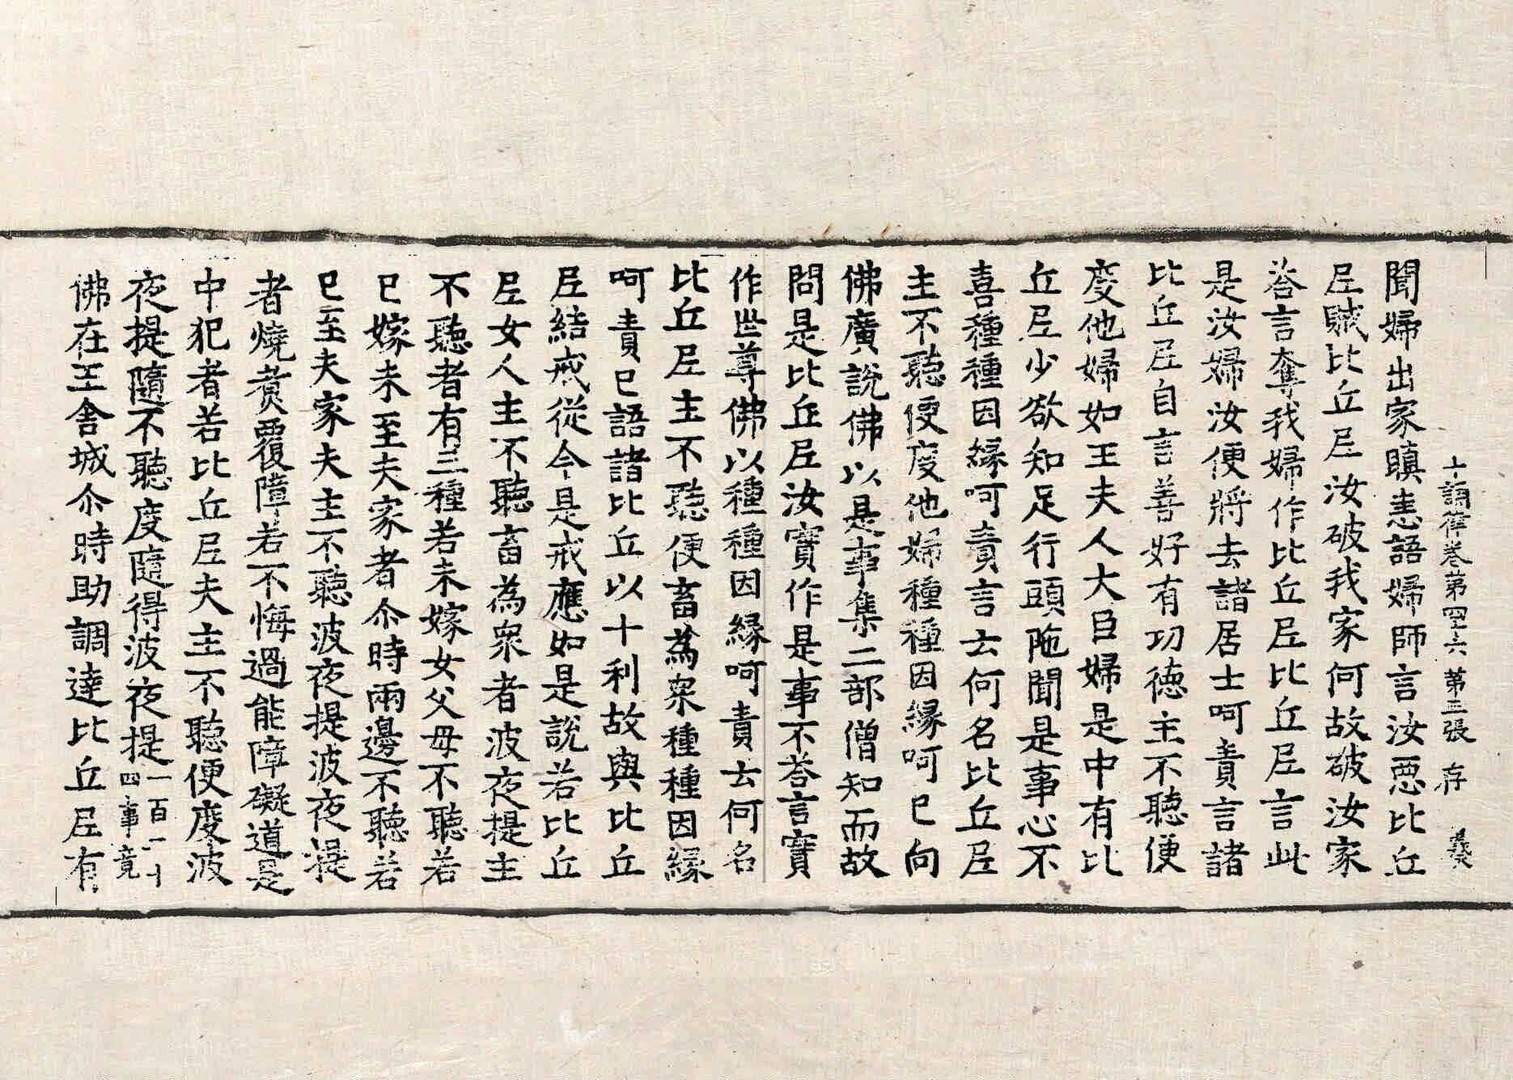 十誦律卷第四十六　第三張　存
聞婦出家瞋恚語婦師言汝惡比丘
尼賊比丘尼汝破我家何故破汝家
荅言奪我婦作比丘尼比丘尼言此
是汝婦汝便將去諸居士呵責言諸
比丘尼自言善好有功德主不聽便
度他婦如王夫人大臣婦是中有比
丘尼少欲知足行頭陁聞是事心不
喜種種因緣呵責言云何名比丘尼
主不聽便度他婦種種因緣呵已向
佛廣說佛以是事集二部僧知而故
問是比丘尼汝實作是事不荅言實
作世尊佛以種種因緣呵責云何名
比丘尼主不聽便畜為眾種種因緣
呵責已語諸比丘以十利故與比丘
尼結戒從今是戒應如是說若比丘
尼女人主不聽畜為眾者波夜提主
不聽者有三種若未嫁女父母不聽若
已嫁未至夫家者尒時兩邊不聽若
已至夫家夫主不聽波夜提波夜提
者燒煑覆障若不悔過能障礙道是
中犯者若比丘尼夫主不聽便度波
夜提隨不聽度隨得波夜提一百一十四事竟
佛在王舍城尒時助調達比丘尼有